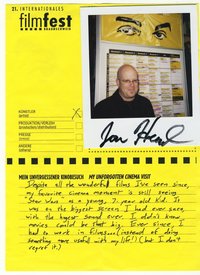 21. INTERNATIONALES
filmfest
BRAUNSCHWEIG
KÜNSTLER
(artist)
PRODUKTION/VERLEIH
(production/distributors)
PRESSE
(press)
ANDERE
(others)
MEIN UNVERGESSENER KINOBESUCH MY UNFORGOTTEN CINEMA VISIT
Despite all the wonderful films I've seen since,
my favorite cinema moment is still seeing
Star Wars as a young, 7-year old kid. It
was on the biggest screen I had ever seen,
with the largest sound ever. I didn't know
movies could be that big. Ever since, I
had to work in films... (instead of doing
something more useful with my life!) (but I don't
regret it.)